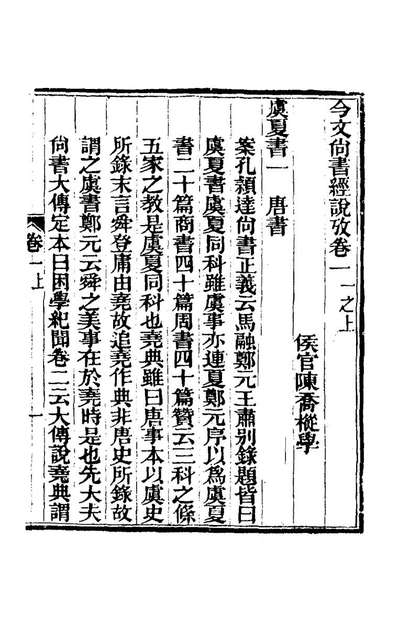 今文尚書經說攷卷一 一之上
侯官陳喬樅學
虞夏書一 唐書
案孔穎達尚書正義云馬融鄭元王肅別錄題皆曰
虞夏書虞夏同科雖虞事亦連夏鄭元序以爲虞夏
書二十篇商書四十篇周書四十篇贊云三科之條
五家之教是虞夏同科也堯典雖曰唐事本以虞史
所錄末言舜登庸由堯故追堯作典非唐史所錄故
謂之虞書鄭元云舜之美事在於堯時是也先大夫
尚書大傳定本曰困學紀聞卷二云大傳說堯典謂
卷一上
一